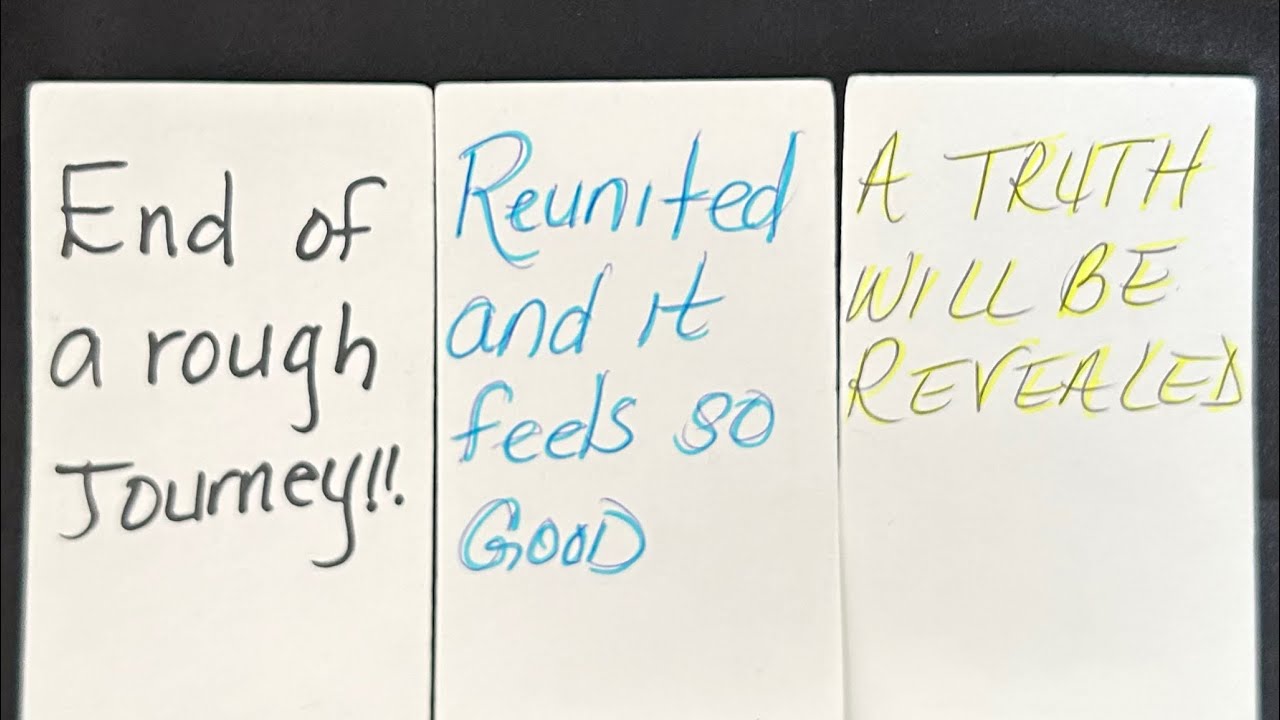 End of
a rough
Journey!!
Reunited
and it
feels so
GOOD
A TRUTH
WILL BE
REVEALED